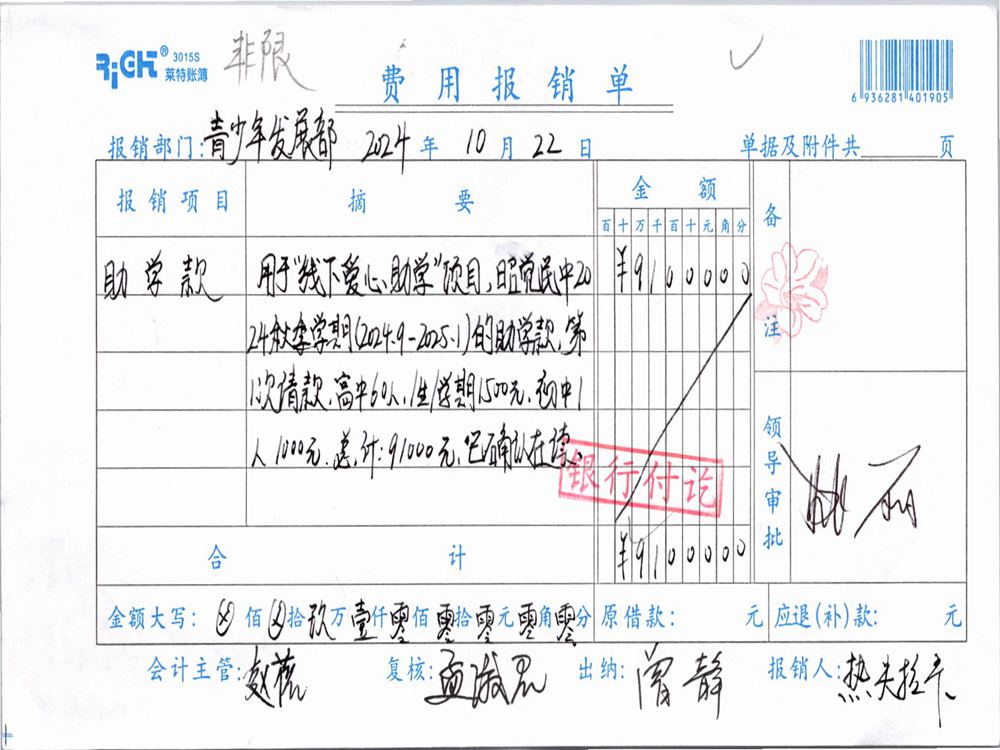 RiGHT® 3015S 莱特账簿 非限
费用报销单
6 936281 401905
报销部门:青少年发展部 2024 年 10 月 22 日 单据及附件共 页
报销项目 摘要 金额 备注
百十万千百十元角分
助学款 用于"线下爱心助学"项目,昭觉民中20 ¥9100000
24秋季学期(2024.9-2025.1)的助学款,第
1次请款,高中60人,/生/学期1500元,初中1
人1000元,总计:91000元,已确认在读。
银行付讫
领导审批
合计 ¥9100000
金额大写: ⊗ 佰 ⊗ 拾 玖 万 壹 仟 零 佰 零 拾 零 元 零 角 零 分 原借款: 元 应退(补)款: 元
会计主管: 复核: 出纳: 曾静 报销人: 热夫拉卡